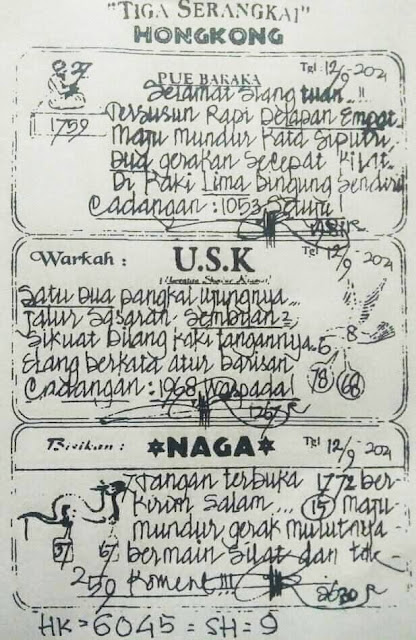 "TIGA SERANGKAI"
HONGKONG
PUE BARAKA
Tgl : 12/9-2021
Selamat Siang tuan...!!
Tersusun Rapi Delapan Empat
Maju Mundur Kata Siputri
Dua gerakan Secepat Kilat.
Di Kaki Lima bingung Sendiri
Cadangan : 1053 Setuju!
27
1759
Warkah :
U.S.K
Tgl 12/9-2021
Satu Dua pangkal ujungnya...
Jalur Sasaran Sembilan 2
Sikuat bilang kaki tangannya
Elang berkata atur barisan
Cadangan : 1968 Waspada!
8
5
78
68
1267
Bisikan :
✡NAGA✡
Tgl 12/9-2021
Tangan terbuka 1772 ber-
Kirim Salam... 15 Maju
mundur gerak mulutnya
bermain Silat dan tak
Koment!!!
259
2630
HK > 6045 = SH = 9